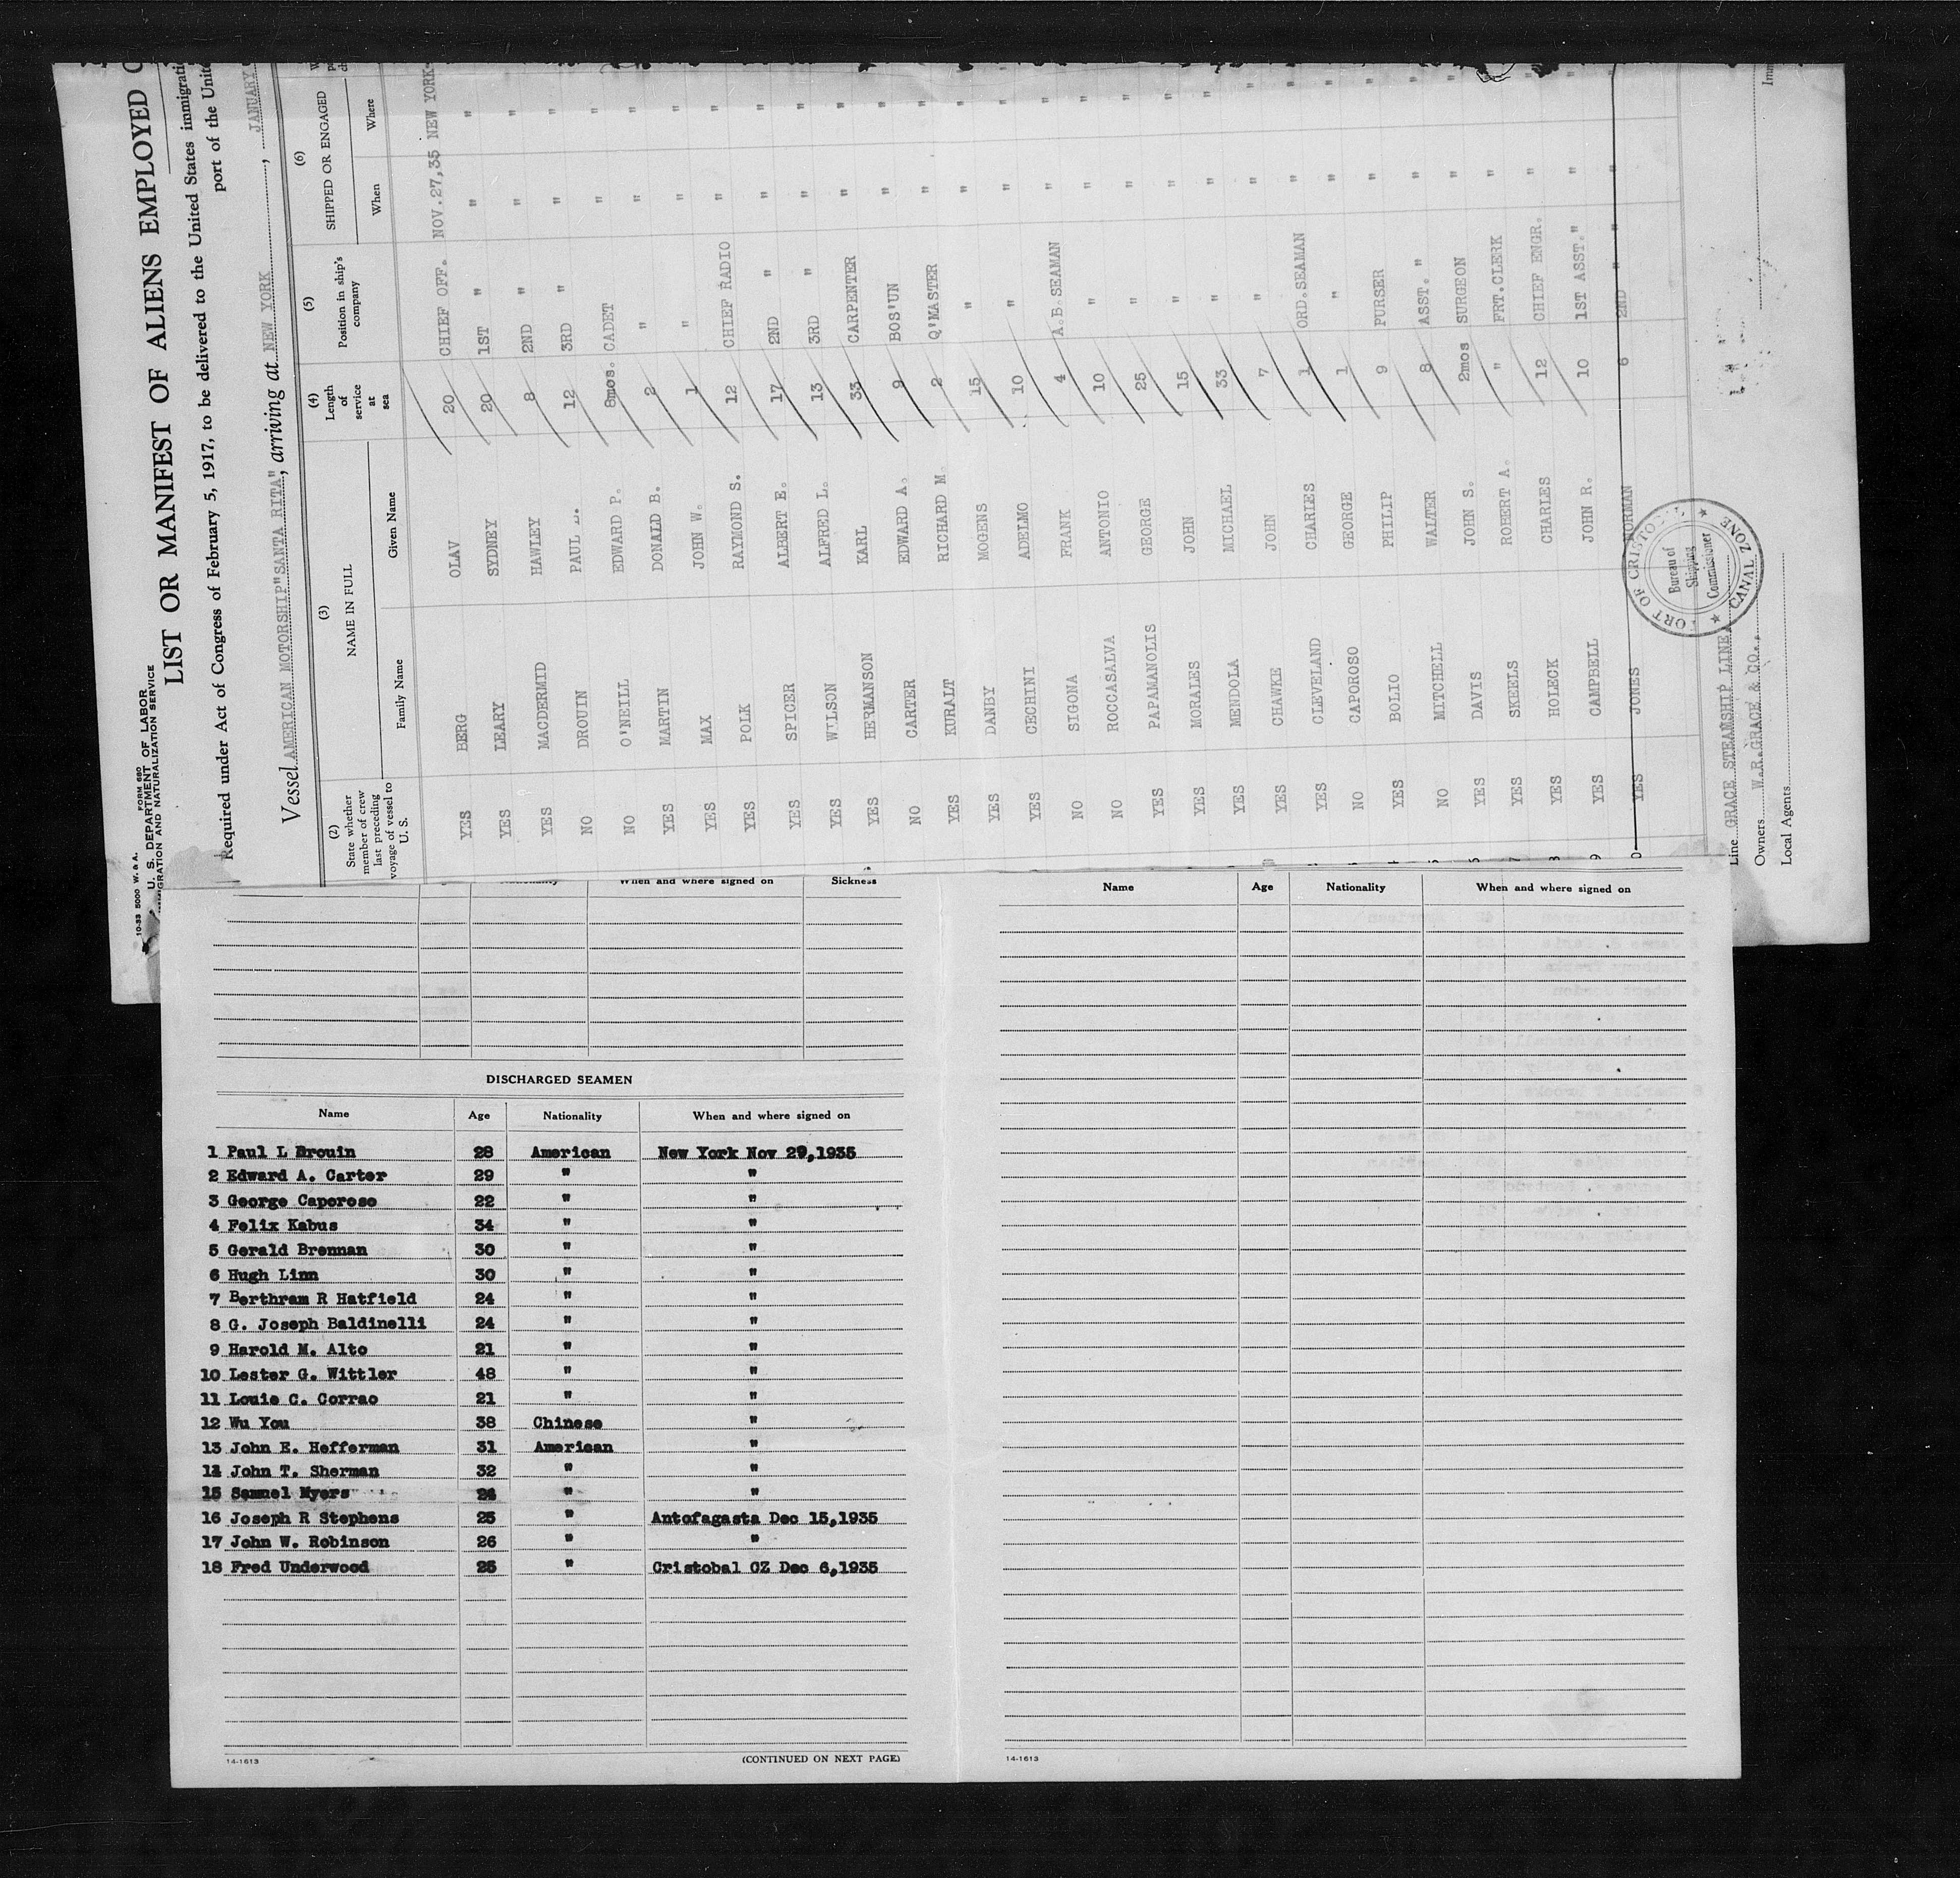 10-33 5000 W. & A. FORM 680
U. S. DEPARTMENT OF LABOR
IMMIGRATION AND NATURALIZATION SERVICE
LIST OR MANIFEST OF ALIENS EMPLOYED
Required under Act of Congress of February 5, 1917, to be delivered to the United States
port of the
Vessel AMERICAN MOTORSHIP "SANTA RITA", arriving at NEW YORK, JANUARY
(2) State whether member of crew last preceding voyage of vessel to U. S.
(3) NAME IN FULL
Family Name Given Name
(4) Length of service at sea
(5) Position in ship's company
(6) SHIPPED OR ENGAGED
When Where
YES BERG OLAV 20 CHIEF OFF. NOV.27,35 NEW YORK
YES LEARY SYDNEY 20 1ST " " "
YES MACDERMID HAWLEY 8 2ND " " "
NO DROUIN PAUL L. 12 3RD " " "
NO O'NEILL EDWARD P. 8mos. CADET " "
YES MARTIN DONALD B. 2 " " "
YES MAX JOHN W. 1 " " "
YES POLK RAYMOND S. 12 CHIEF RADIO " "
YES SPICER ALBERT E. 17 2ND " " "
YES WILSON ALFRED L. 13 3RD " " "
YES HERMANSON KARL 33 CARPENTER " "
NO CARTER EDWARD A. 9 BOS'UN " "
YES KURALT RICHARD M. 2 Q'MASTER " "
YES DANBY MOGENS 15 " " "
YES CECHINI ADELMO 10 " " "
NO SIGONA FRANK 4 A.B.SEAMAN " "
NO ROCCASALVA ANTONIO 10 " " "
YES PAPAMANOLIS GEORGE 25 " " "
YES MORALES JOHN 15 " " "
YES MENDOLA MICHAEL 33 " " "
YES CHAWKE JOHN 7 " " "
YES CLEVELAND CHARLES 1 ORD.SEAMAN " "
NO CAPOROSO GEORGE 1 " " "
YES BOLIO PHILIP 9 PURSER " "
NO MITCHELL WALTER 8 ASST. " " "
YES DAVIS JOHN S. 2mos SURGEON " "
YES SKEELS ROBERT A. " FRT.CLERK " "
YES HOLECK CHARLES 12 CHIEF ENGR. " "
YES CAMPBELL JOHN R. 10 1ST ASST." " "
YES JONES NORMAN 6 2ND " " "
Line GRACE STEAMSHIP LINE
Owners W.R.GRACE & CO.,
Local Agents
PORT OF CRISTOBAL
Bureau of
Shipping
Commissioner
★ CANAL ZONE ★
Nationality When and where signed on Sickness
DISCHARGED SEAMEN
Name Age Nationality When and where signed on
1 Paul L Drouin 28 American New York Nov 29,1935
2 Edward A. Carter 29 " "
3 George Caporoso 22 " "
4 Felix Kabus 34 " "
5 Gerald Brennan 30 " "
6 Hugh Linn 30 " "
7 Berthram R Hatfield 24 " "
8 G. Joseph Baldinelli 24 " "
9 Harold M. Alto 21 " "
10 Lester G. Wittler 48 " "
11 Louie C. Corrao 21 " "
12 Wu You 38 Chinese "
13 John E. Hefferman 31 American "
14 John T. Sherman 32 " "
15 Samuel Myers " "
16 Joseph R Stephens 25 " Antofagasta Dec 15,1935
17 John W. Robinson 26 " "
18 Fred Underwood 25 " Cristobal CZ Dec 6,1935
14-1613 (CONTINUED ON NEXT PAGE)
Name Age Nationality When and where signed on
14-1613